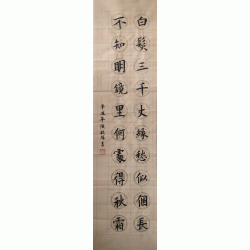 白髮三千丈緣愁似個長
不知明鏡里何處得秋霜